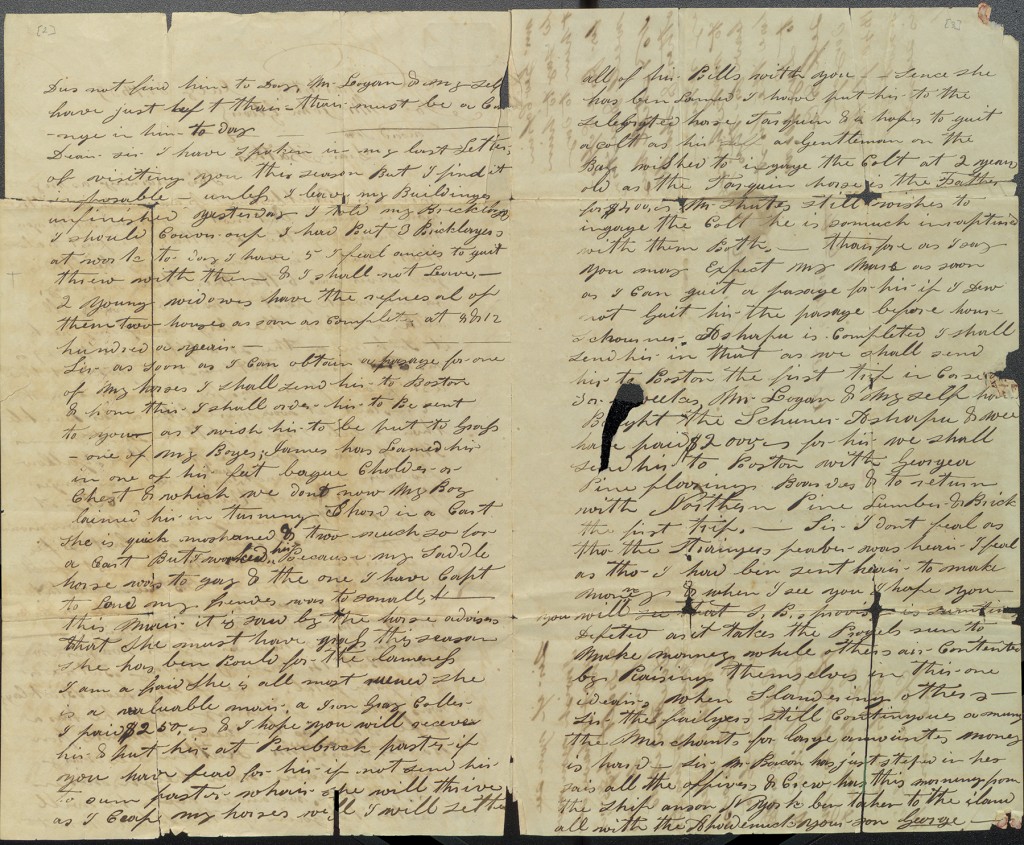 [2]
Dus not find him to Day, Mr. Logan & my self
have just left thair thair must be a Can
-nge in him to day
Dear Sir I have spoken in my last Letter,
of visiting you this season But I find it
imposable - unless I leave my Buildings
unfinished yesterday I told my Bricklayer
I should I had But 3 Bricklayers
at work to day I have 5 I feal ancies to guit
threw with them & I shall not Leave, -
2 young widowes have the refuesal of
them two houses as soon as Complete, at $812
hundred a year. -
Sir as soon as I Can obtain a passage for one
of my horses I shall send hir to Boston
& from thir I shall order hir to Be sent
to your as I wish hir to be put to Grass
- one of my Boyes, James has Lamed hir
in one of hir feet Cholder or
Chest & which we dont now My Boy
lamed hir in turning Short in a Cart
She is quick moshaned & two much so for
a Cart But I worked hir Because my Saddle
horse was to gay & the one I have Capt
to Lend my frendes was to small,
this Mair it is saw by the horse advisers
that She must have grass this season
she has ben Rould for the Lameness
I am a fraid She is all most ruened she
is a valuable mair, a Iron Gray Coller
I paid $250, & I hope you will receve
hir & put hir at Pembrock paster if
you have fead for hir if not send hir
to sum paster whair she will thrive
as I Ceap my horses well I will settle
[3]
all of hir Bills with you - Sence she
has ben Lamed I have put hir to the
selebrated horse Tarquin & a hopes to guit
a Colt as hir a Gentleman on the
Bay wished to ingage the Colt at 2 years
old as the Tarquin horse is the Father
for $200, Mr. Shutes still wishes to
ingage the Colt he is so much incaptured
with them Both, - thairfore as I say
you may Expect my Mare as soon
as I Can guit a passage for hir if I Dow
not Guit hir the passage before hour
schouner, Asharpee is Completed I shall
send hir in that as we shall send
hir to Boston the first trip in
or weekes, Mr. Logan & My self have
Bought the Schuner Asharpee & wee
have paid $2000 for hir we shall
send hir to Boston with Georgea
Pine floorings Boardes & to return
with Northern Pine Lumber & Brick
the first trip. - Sir I dont feal as
tho the Strangers feaver was hear I feal
as tho I had ben sent hear to make
money & when I see you I hope you
you will see that is
Depeted as it takes the Peopels sun to
Make monney while others air Contented
by Raising themselves in this one
ideair, when Slandering others -
Sir the failyers still Continyoues amung
the Merchants for large amountes money
is hard - Sir Mr. Bacon has just steped in her
sais all the officers & Crew has this morning from
the Ship anson N York ben taken to the iland
all with the your son George. -